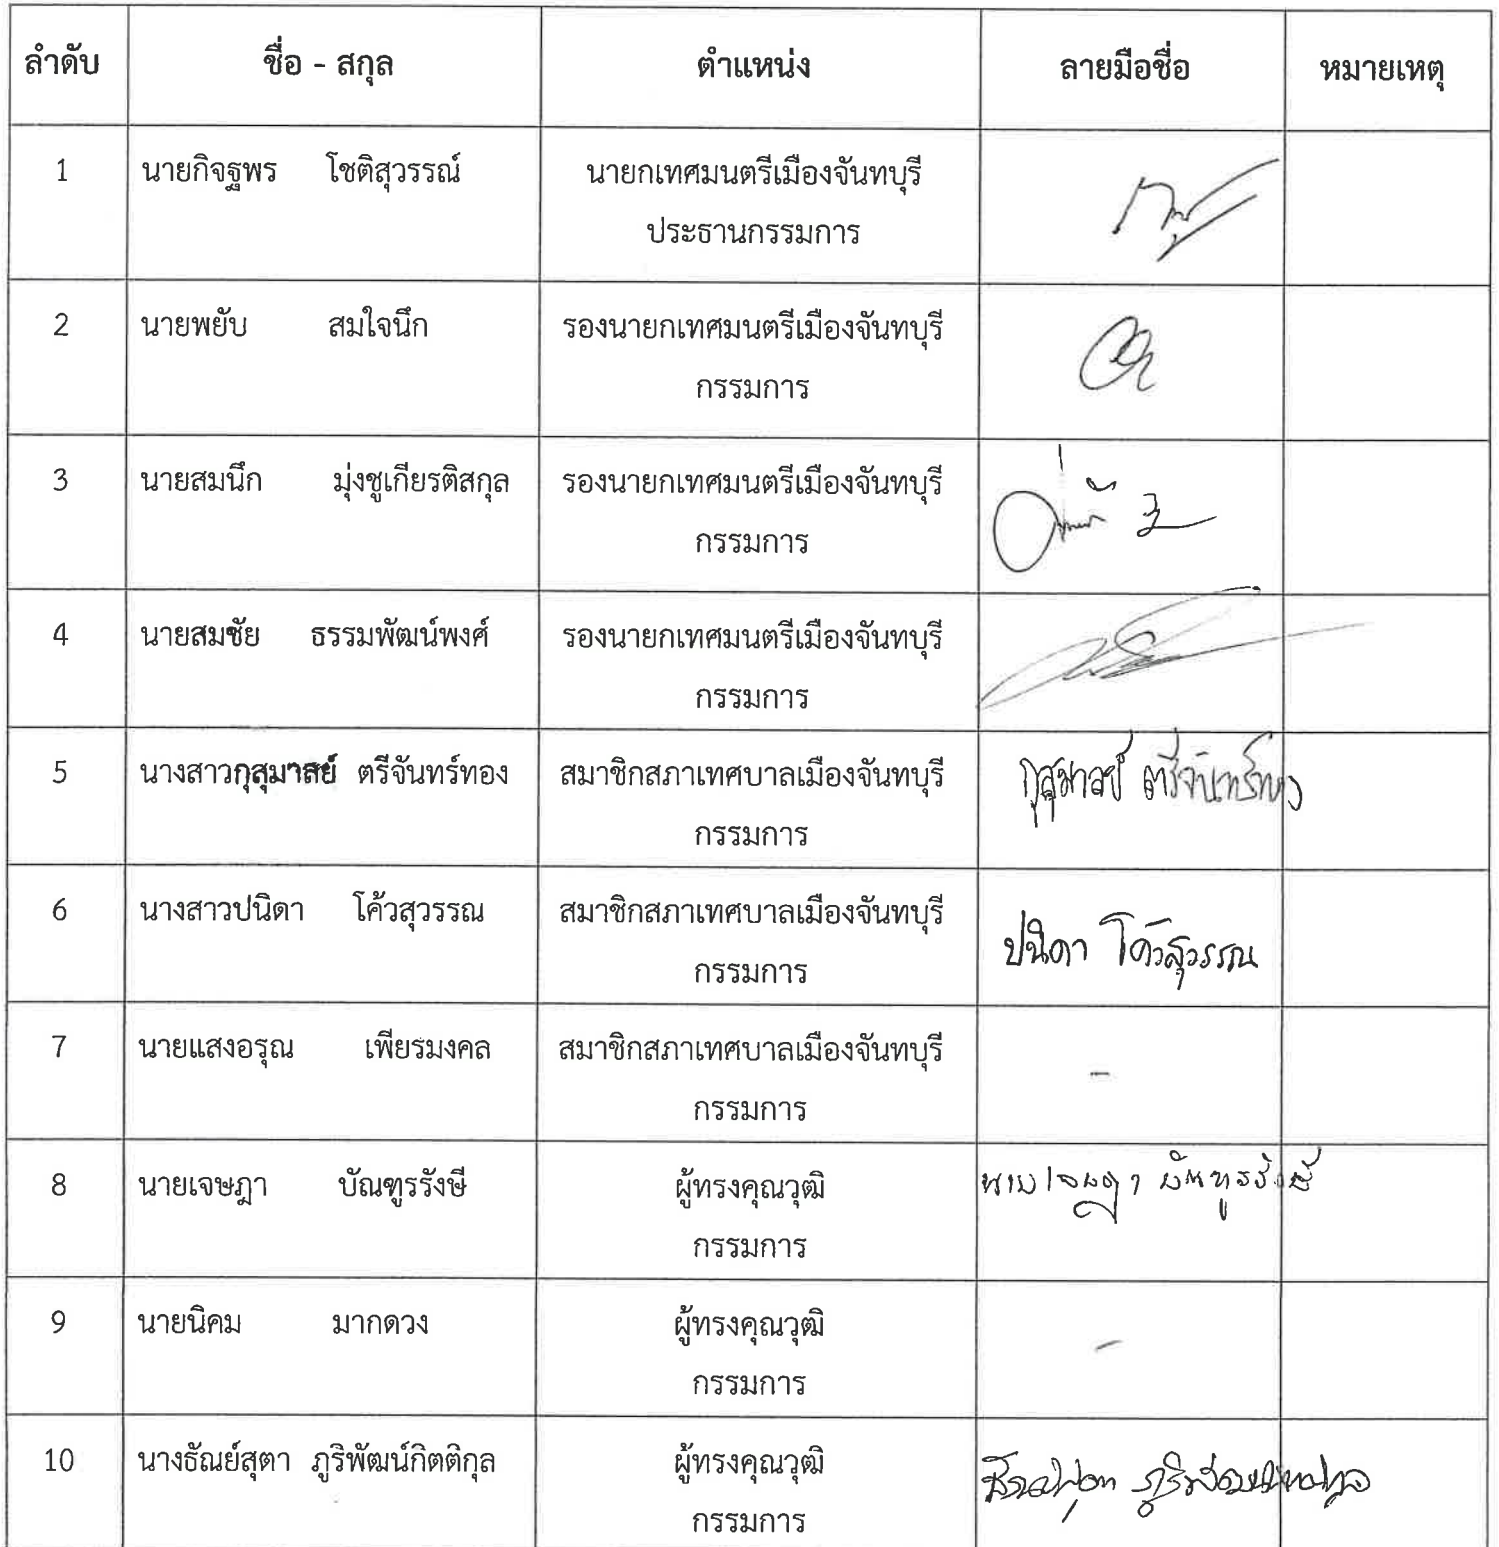 ลำดับ ชื่อ - สกุล ตำแหน่ง ลายมือชื่อ หมายเหตุ
1 นายกิจฐพร โชติสุวรรณ์ นายกเทศมนตรีเมืองจันทบุรี
ประธานกรรมการ
2 นายพยับ สมใจนึก รองนายกเทศมนตรีเมืองจันทบุรี
กรรมการ
3 นายสมนึก มุ่งชูเกียรติสกุล รองนายกเทศมนตรีเมืองจันทบุรี
กรรมการ
4 นายสมชัย ธรรมพัฒน์พงศ์ รองนายกเทศมนตรีเมืองจันทบุรี
กรรมการ
5 นางสาวกุสุมาสย์ ตรีจันทร์ทอง สมาชิกสภาเทศบาลเมืองจันทบุรี กุสุมาลย์ ตรีจันทร์ทอง
กรรมการ
6 นางสาวปนิดา โค้วสุวรรณ สมาชิกสภาเทศบาลเมืองจันทบุรี ปนิดา โค้วสุวรรณ
กรรมการ
7 นายแสงอรุณ เพียรมงคล สมาชิกสภาเทศบาลเมืองจันทบุรี -
กรรมการ
8 นายเจษฎา บัณฑูรรังษี ผู้ทรงคุณวุฒิ นายเจษฎา บัณฑูรรังษี
กรรมการ
9 นายนิคม มากดวง ผู้ทรงคุณวุฒิ -
กรรมการ
10 นางธัณย์สุตา ภูริพัฒน์กิตติกุล ผู้ทรงคุณวุฒิ
กรรมการ